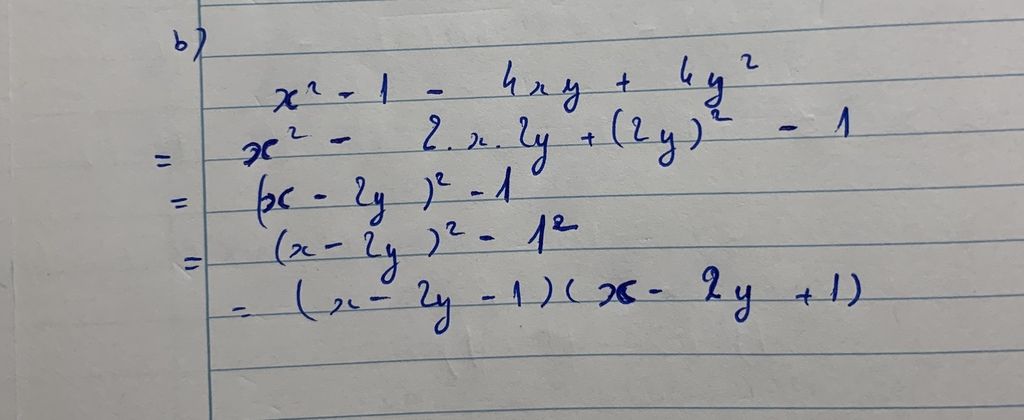 b)
x² - 1 - 4xy + 4y²
= x² - 2.x.2y + (2y)² - 1
= (x - 2y)² - 1
= (x - 2y)² - 1²
= (x - 2y - 1)(x - 2y + 1)